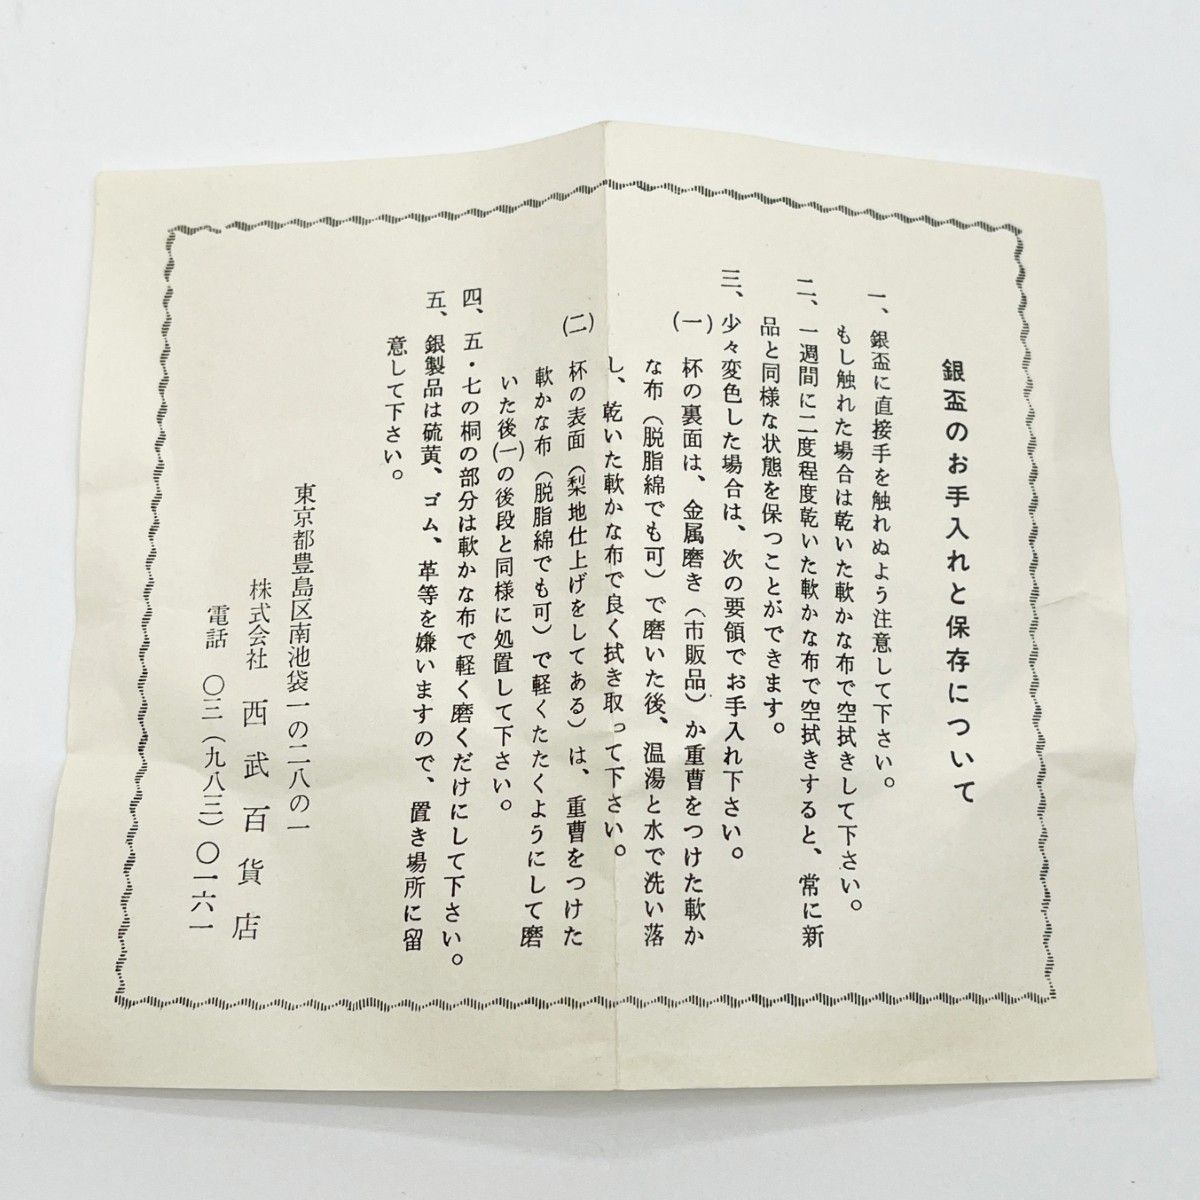 銀盃のお手入れと保存について
一、銀盃に直接手を触れぬよう注意して下さい。
もし触れた場合は乾いた軟かな布で空拭きして下さい。
二、一週間に二度程度乾いた軟かな布で空拭きすると、常に新
品と同様な状態を保つことができます。
三、少々変色した場合は、次の要領でお手入れ下さい。
(一)杯の裏面は、金属磨き(市販品)か重曹をつけた軟か
な布(脱脂綿でも可)で磨いた後、温湯と水で洗い落
し、乾いた軟かな布で良く拭き取って下さい。
(二)杯の表面(梨地仕上げをしてある)は、重曹をつけた
軟かな布(脱脂綿でも可)で軽くたたくようにして磨
いた後(一)の後段と同様に処置して下さい。
四、五・七の桐の部分は軟かな布で軽く磨くだけにして下さい。
五、銀製品は硫黄、ゴム、革等を嫌いますので、置き場所に留
意して下さい。
東京都豊島区南池袋一の二八の一
株式会社 西武百貨店
電話 〇三(九八三)〇一六一